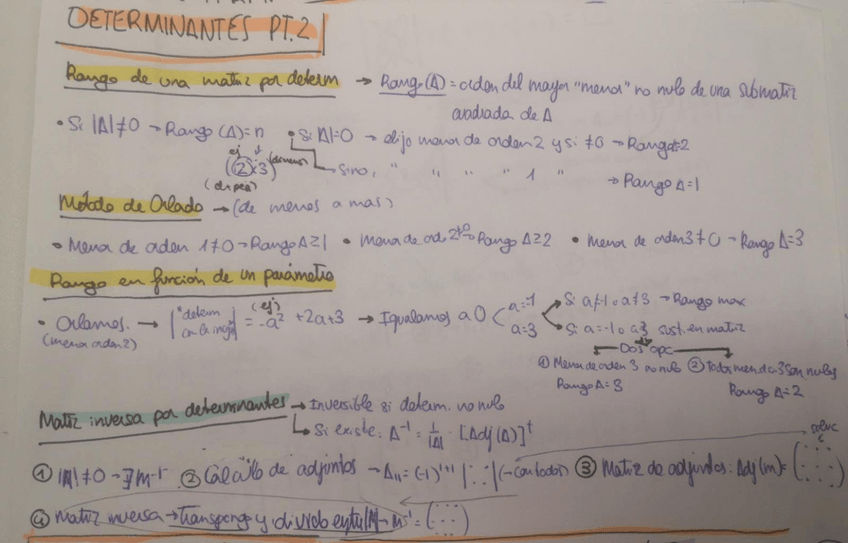 DETERMINANTES PT.2
Rango de una matriz por determ → Rango(A) = orden del mayor "menor" no nulo de una submatriz
cuadrada de A
• Si |A|≠0 → Rango (A)=n • Si |A|=0 → elijo menor de orden 2 y si ≠0 → Rango A=2
ej
(2×3) Sino, " " " " 1 " → Rango A=1
Método de Orlado → (de menos a mas)
• Menor de orden 1≠0 → Rango A≥1 • Menor de ord 2≠0 → Rango A≥2 • Menor de orden 3≠0 → Rango A=3
Rango en función de un parámetro
(ej) a=-1 Si a≠-1 o a≠3 → Rango max
• Orlamos. → | "determ | = -a² +2a+3 → Igualamos a 0
(menor orden 2) a=3 Si a=-1 o a=3 sust. en matriz
Dos opc
① Menor de orden 3 no nulo ② Todos menor d.3 son nulos
Rango A=3 Rango A=2
Matriz inversa por determinantes → Inversible si determ. no nulo
↳ Si existe: A⁻¹ = 1/|A| · [Adj(A)]ᵗ
① |M|≠0 → ∃M⁻¹ ② Cálculo de adjuntos → A₁₁=(-1)¹⁺¹ |∴| ③ Matriz de adjuntos: Adj(m)=
④ Matriz inversa → Transpongo y divido entre |M| → M⁻¹=